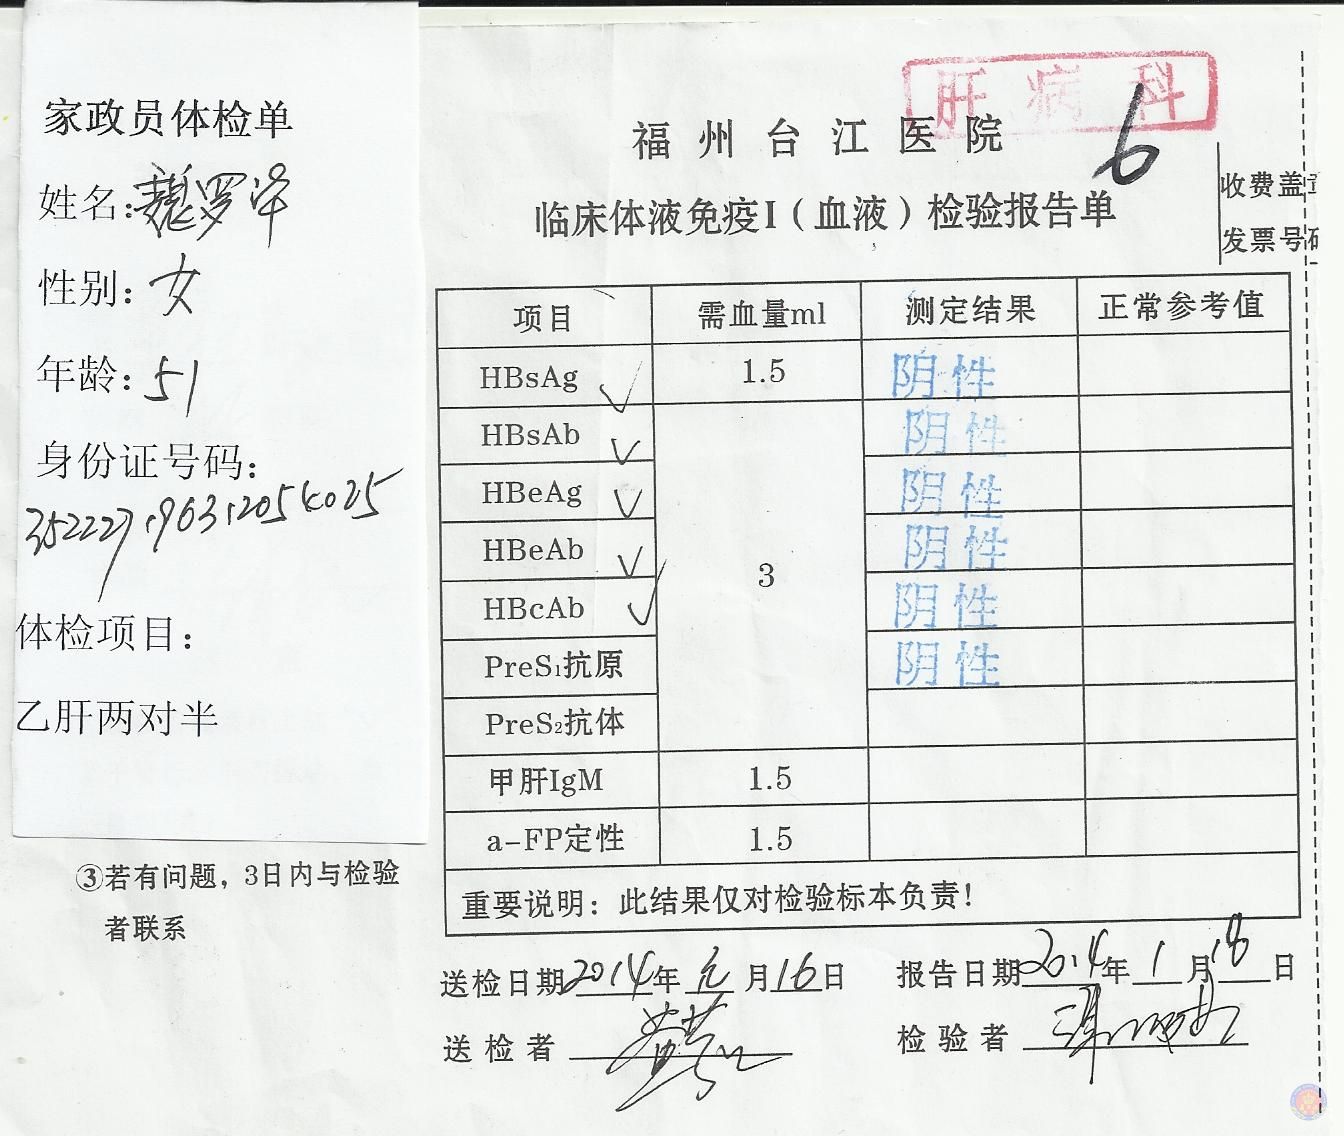 家政员体检单
姓名：魏罗华
性别：女
年龄：51
身份证号码：
体检项目：
乙肝两对半
③若有问题，3日内与检验
者联系
肝病科
福州台江医院
6
临床体液免疫I（血液）检验报告单
收费盖
发票号码
项目 需血量ml 测定结果 正常参考值
HBsAg √ 1.5 阴性
HBsAb √ 阴性
HBeAg √ 阴性
HBeAb √ 3 阴性
HBcAb √ 阴性
PreS₁抗原 阴性
PreS₂抗体
甲肝IgM 1.5
a-FP定性 1.5
重要说明：此结果仅对检验标本负责！
送检日期2014年元月16日 报告日期2014年1月18日
送检者 检验者